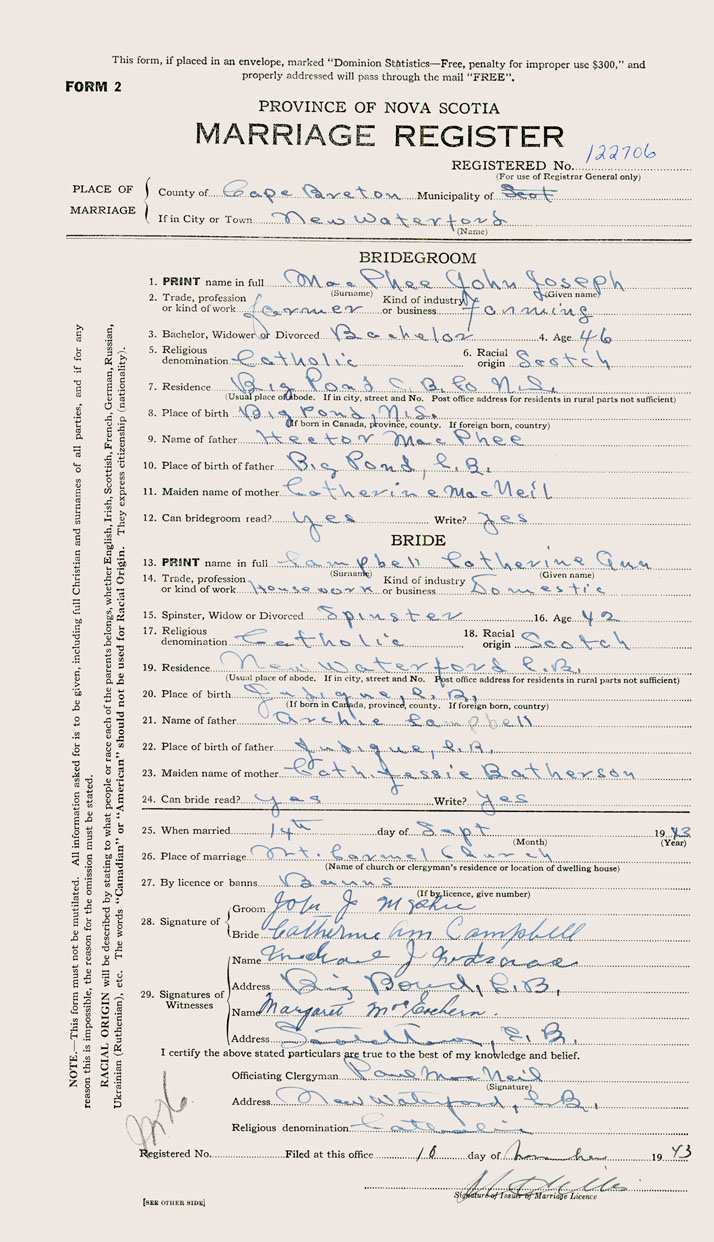 This form, if placed in an envelope, marked "Dominion Statistics—Free, penalty for improper use $300," and
properly addressed will pass through the mail "FREE".
FORM 2
PROVINCE OF NOVA SCOTIA
MARRIAGE REGISTER
REGISTERED No. 122706
(For use of Registrar General only)
PLACE OF MARRIAGE
County of Cape Breton Municipality of Scot
If in City or Town New Waterford
(Name)
BRIDEGROOM
1. PRINT name in full MacPhee John Joseph
(Surname) (Given name)
2. Trade, profession or kind of work farmer Kind of industry or business farming
3. Bachelor, Widower or Divorced Bachelor 4. Age 46
5. Religious denomination Catholic 6. Racial origin Scotch
7. Residence Big Pond C.B. Co N.S.
(Usual place of abode. If in city, street and No. Post office address for residents in rural parts not sufficient)
8. Place of birth Big Pond, N.S.
(If born in Canada, province, county. If foreign born, country)
9. Name of father Hector MacPhee
10. Place of birth of father Big Pond, C.B.
11. Maiden name of mother Catherine MacNeil
12. Can bridegroom read? yes Write? yes
BRIDE
13. PRINT name in full Campbell Catherine Ann
(Surname) (Given name)
14. Trade, profession or kind of work housework Kind of industry or business Domestic
15. Spinster, Widow or Divorced Spinster 16. Age 42
17. Religious denomination Catholic 18. Racial origin Scotch
19. Residence New Waterford C.B.
(Usual place of abode. If in city, street and No. Post office address for residents in rural parts not sufficient)
20. Place of birth Judique, C.B.
(If born in Canada, province, county. If foreign born, country)
21. Name of father Archie Campbell
22. Place of birth of father Judique, C.B.
23. Maiden name of mother Cath. Jessie Batherson
24. Can bride read? yes Write? yes
25. When married 14th day of Sept 1943
(Month) (Year)
26. Place of marriage Mt. Carmel Church
(Name of church or clergyman's residence or location of dwelling house)
27. By licence or banns Banns
(If by licence, give number)
28. Signature of
Groom John J
Bride Catherine Ann Campbell
29. Signatures of Witnesses
Name Michael J
Address Big Pond, C.B.
Name Margaret McEachern.
Address C.B.
I certify the above stated particulars are true to the best of my knowledge and belief.
Officiating Clergyman Paul MacNeil
(Signature)
Address New Waterford, C.B.
Religious denomination Catholic
Registered No. Filed at this office 10 day of November 1943
Signature of Issuer of Marriage Licence
[SEE OTHER SIDE]
NOTE.—This form must not be mutilated. All information asked for is to be given, including full Christian and surnames of all parties, and if for any
reason this is impossible, the reason for the omission must be stated.
RACIAL ORIGIN will be described by stating to what people or race each of the parents belongs, whether English, Irish, Scottish, French, German, Russian,
Ukrainian (Ruthenian), etc. The words "Canadian" or "American" should not be used for Racial Origin. They express citizenship (nationality).